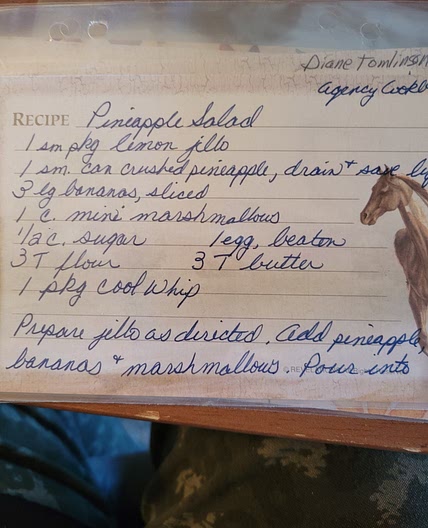 Diane Tomlinson
Agency Cookb
RECIPE Pineapple Salad
1 sm pkg lemon jello
1 sm. can crushed pineapple, drain + save liq
3 lg bananas, sliced
1 c. mini marshmallows
1/2 c. sugar 1 egg, beaten
3 T flour 3 T butter
1 pkg cool whip
Prepare jello as directed. Add pineapple,
bananas + marshmallows. Pour into